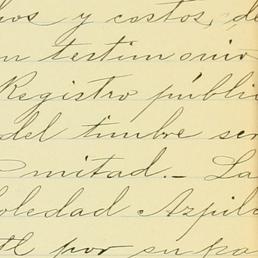 hos y costos, de
n testimonio
Registro públi
del timbre ser
mitad.- La
oledad Azpilc
tl por su pa